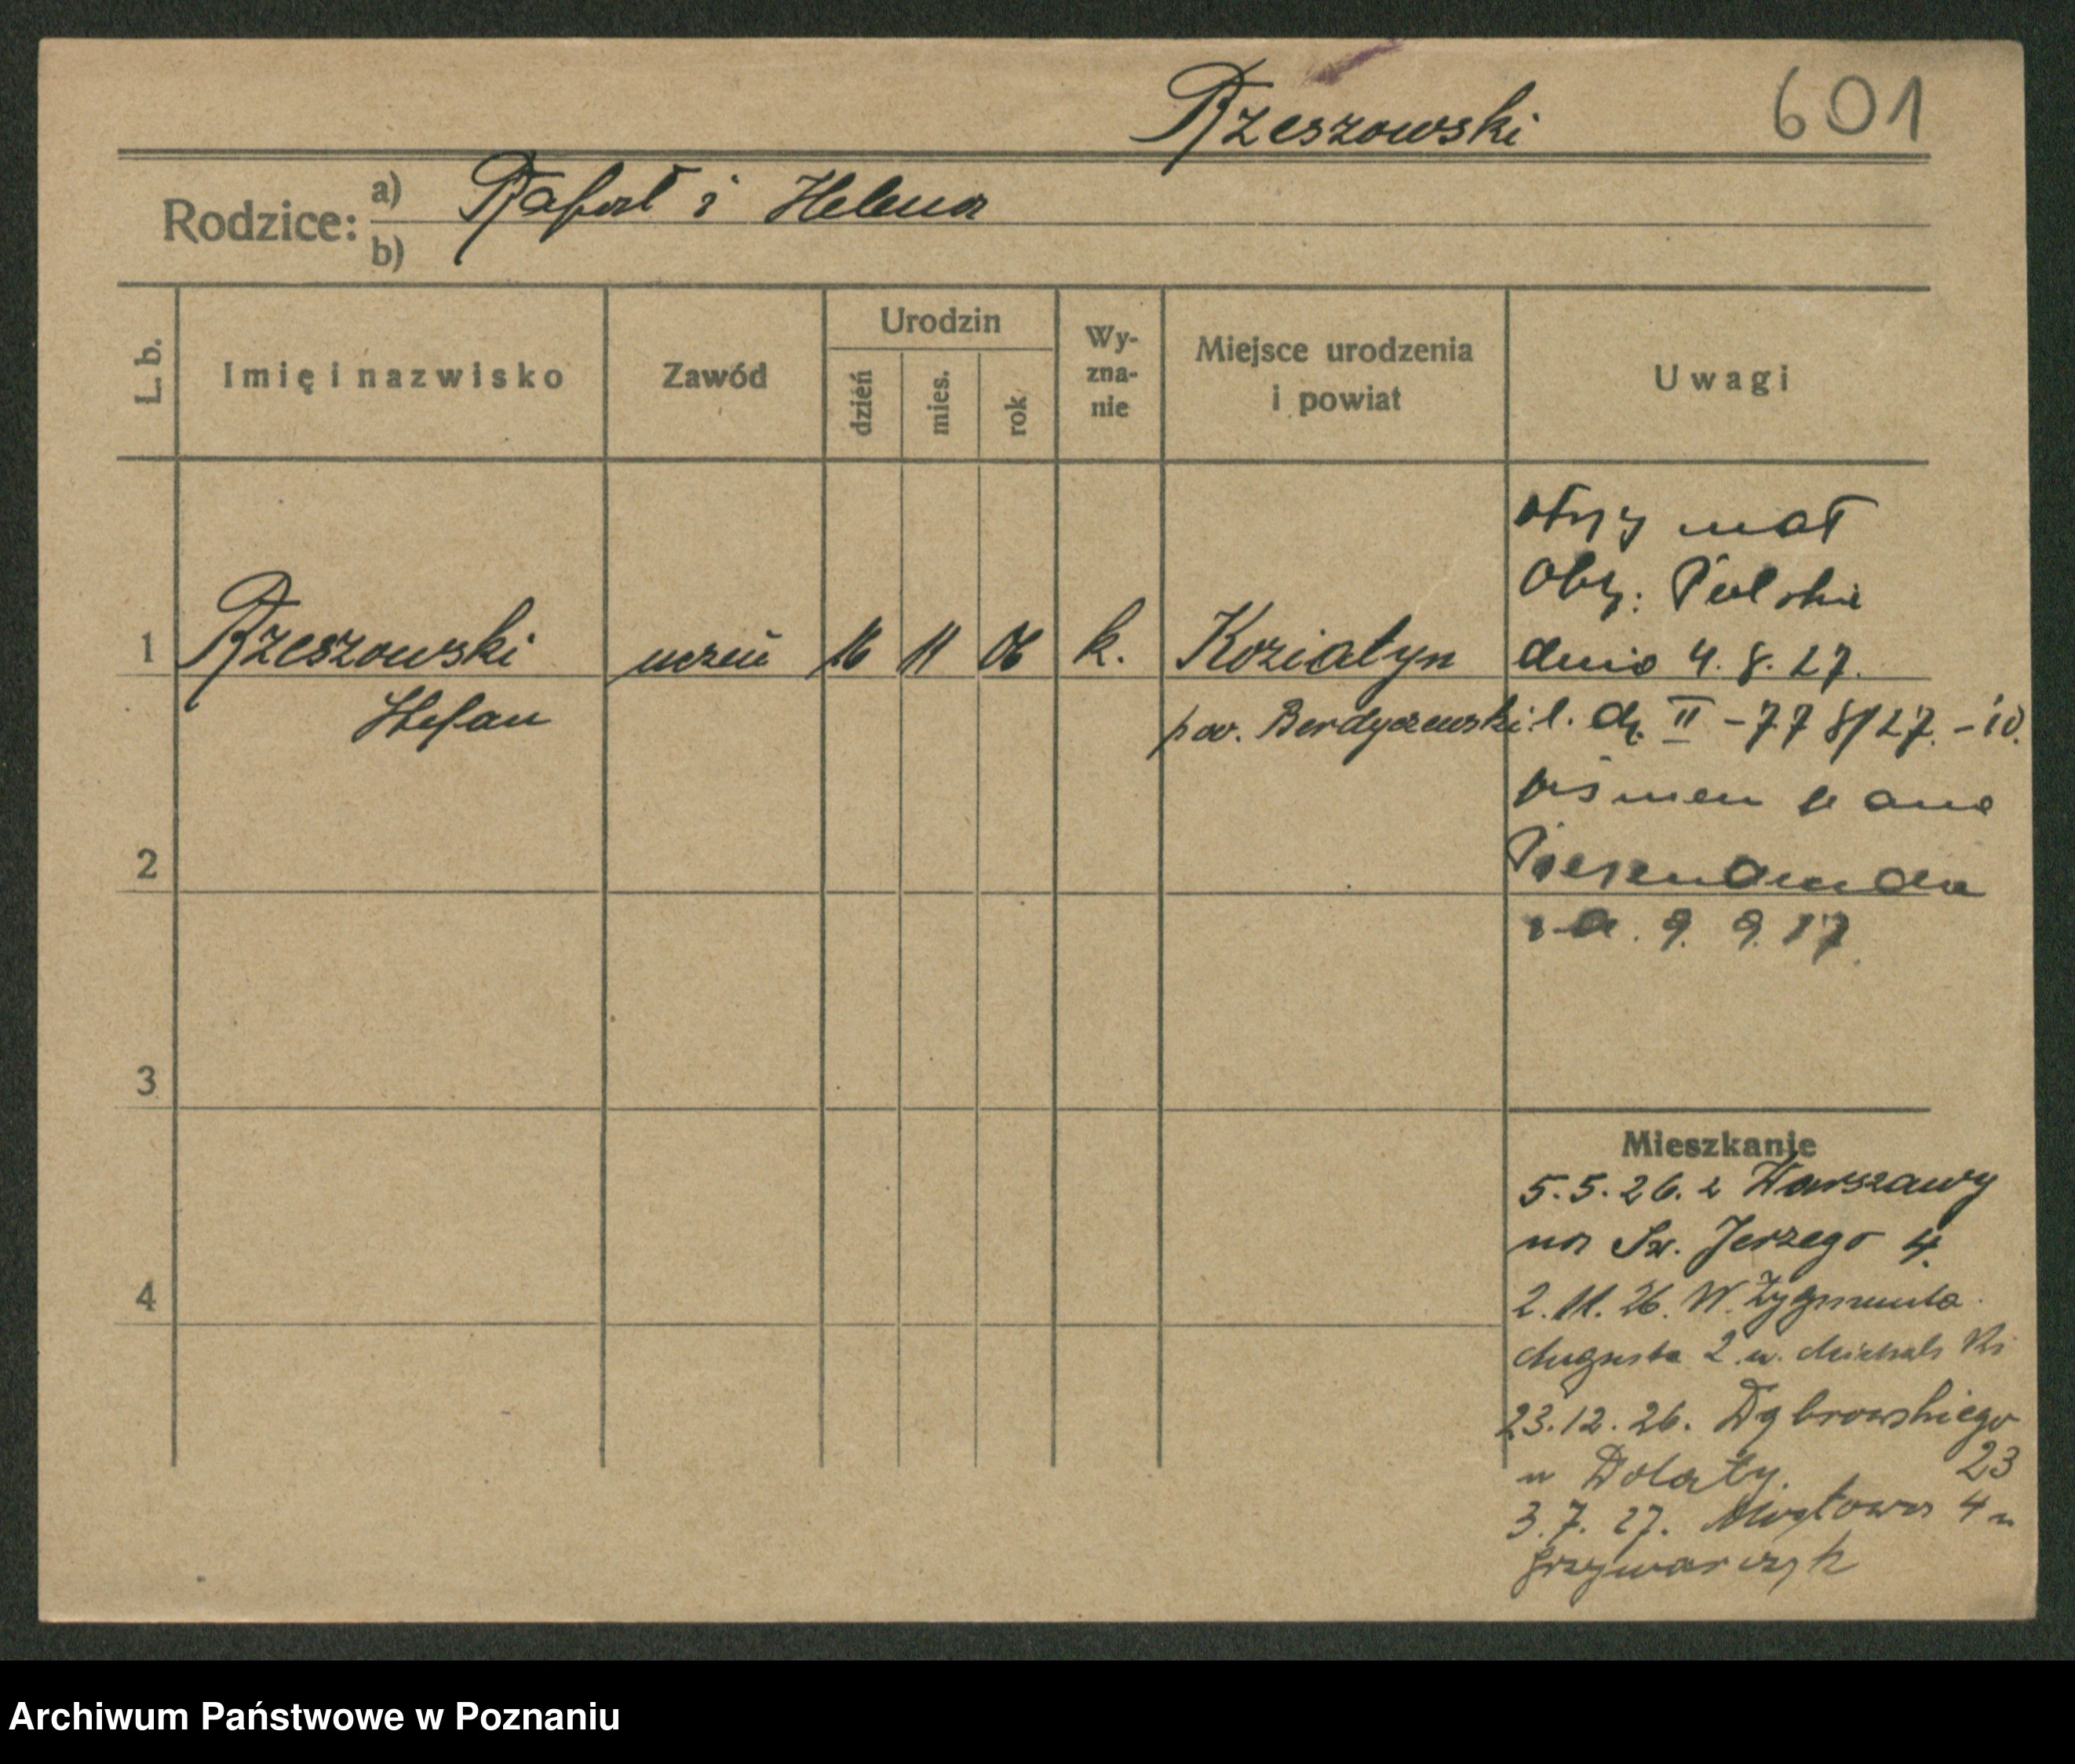 Rzeszowski 601
Rodzice: a) Rafał i Helena
b)
L. b.
Imię i nazwisko
Zawód
Urodzin
dzień
mies.
rok
Wy-
zna-
nie
Miejsce urodzenia
i powiat
Uwagi
otrzymał
Oby: Polskie
dnia 4. 8. 27.
1 Rzeszowski uczeń 16 11 06 k. Koziatyn
Stefan pow. Berdyczewski
l. dz. II - 778/27. -
pismem pana
Prezydenta
z d. 9. 9. 27.
2
3
4
Mieszkanie
5.5.26. z Warszawy
na Św. Jerzego 4.
2.11.26. W. Zygmunta
Augusta 2. u.
23.12.26. Dąbrowskiego
23
u Dolaty.
3.7.27. Mostowa 4 u
Grzywarczyk
Archiwum Państwowe w Poznaniu